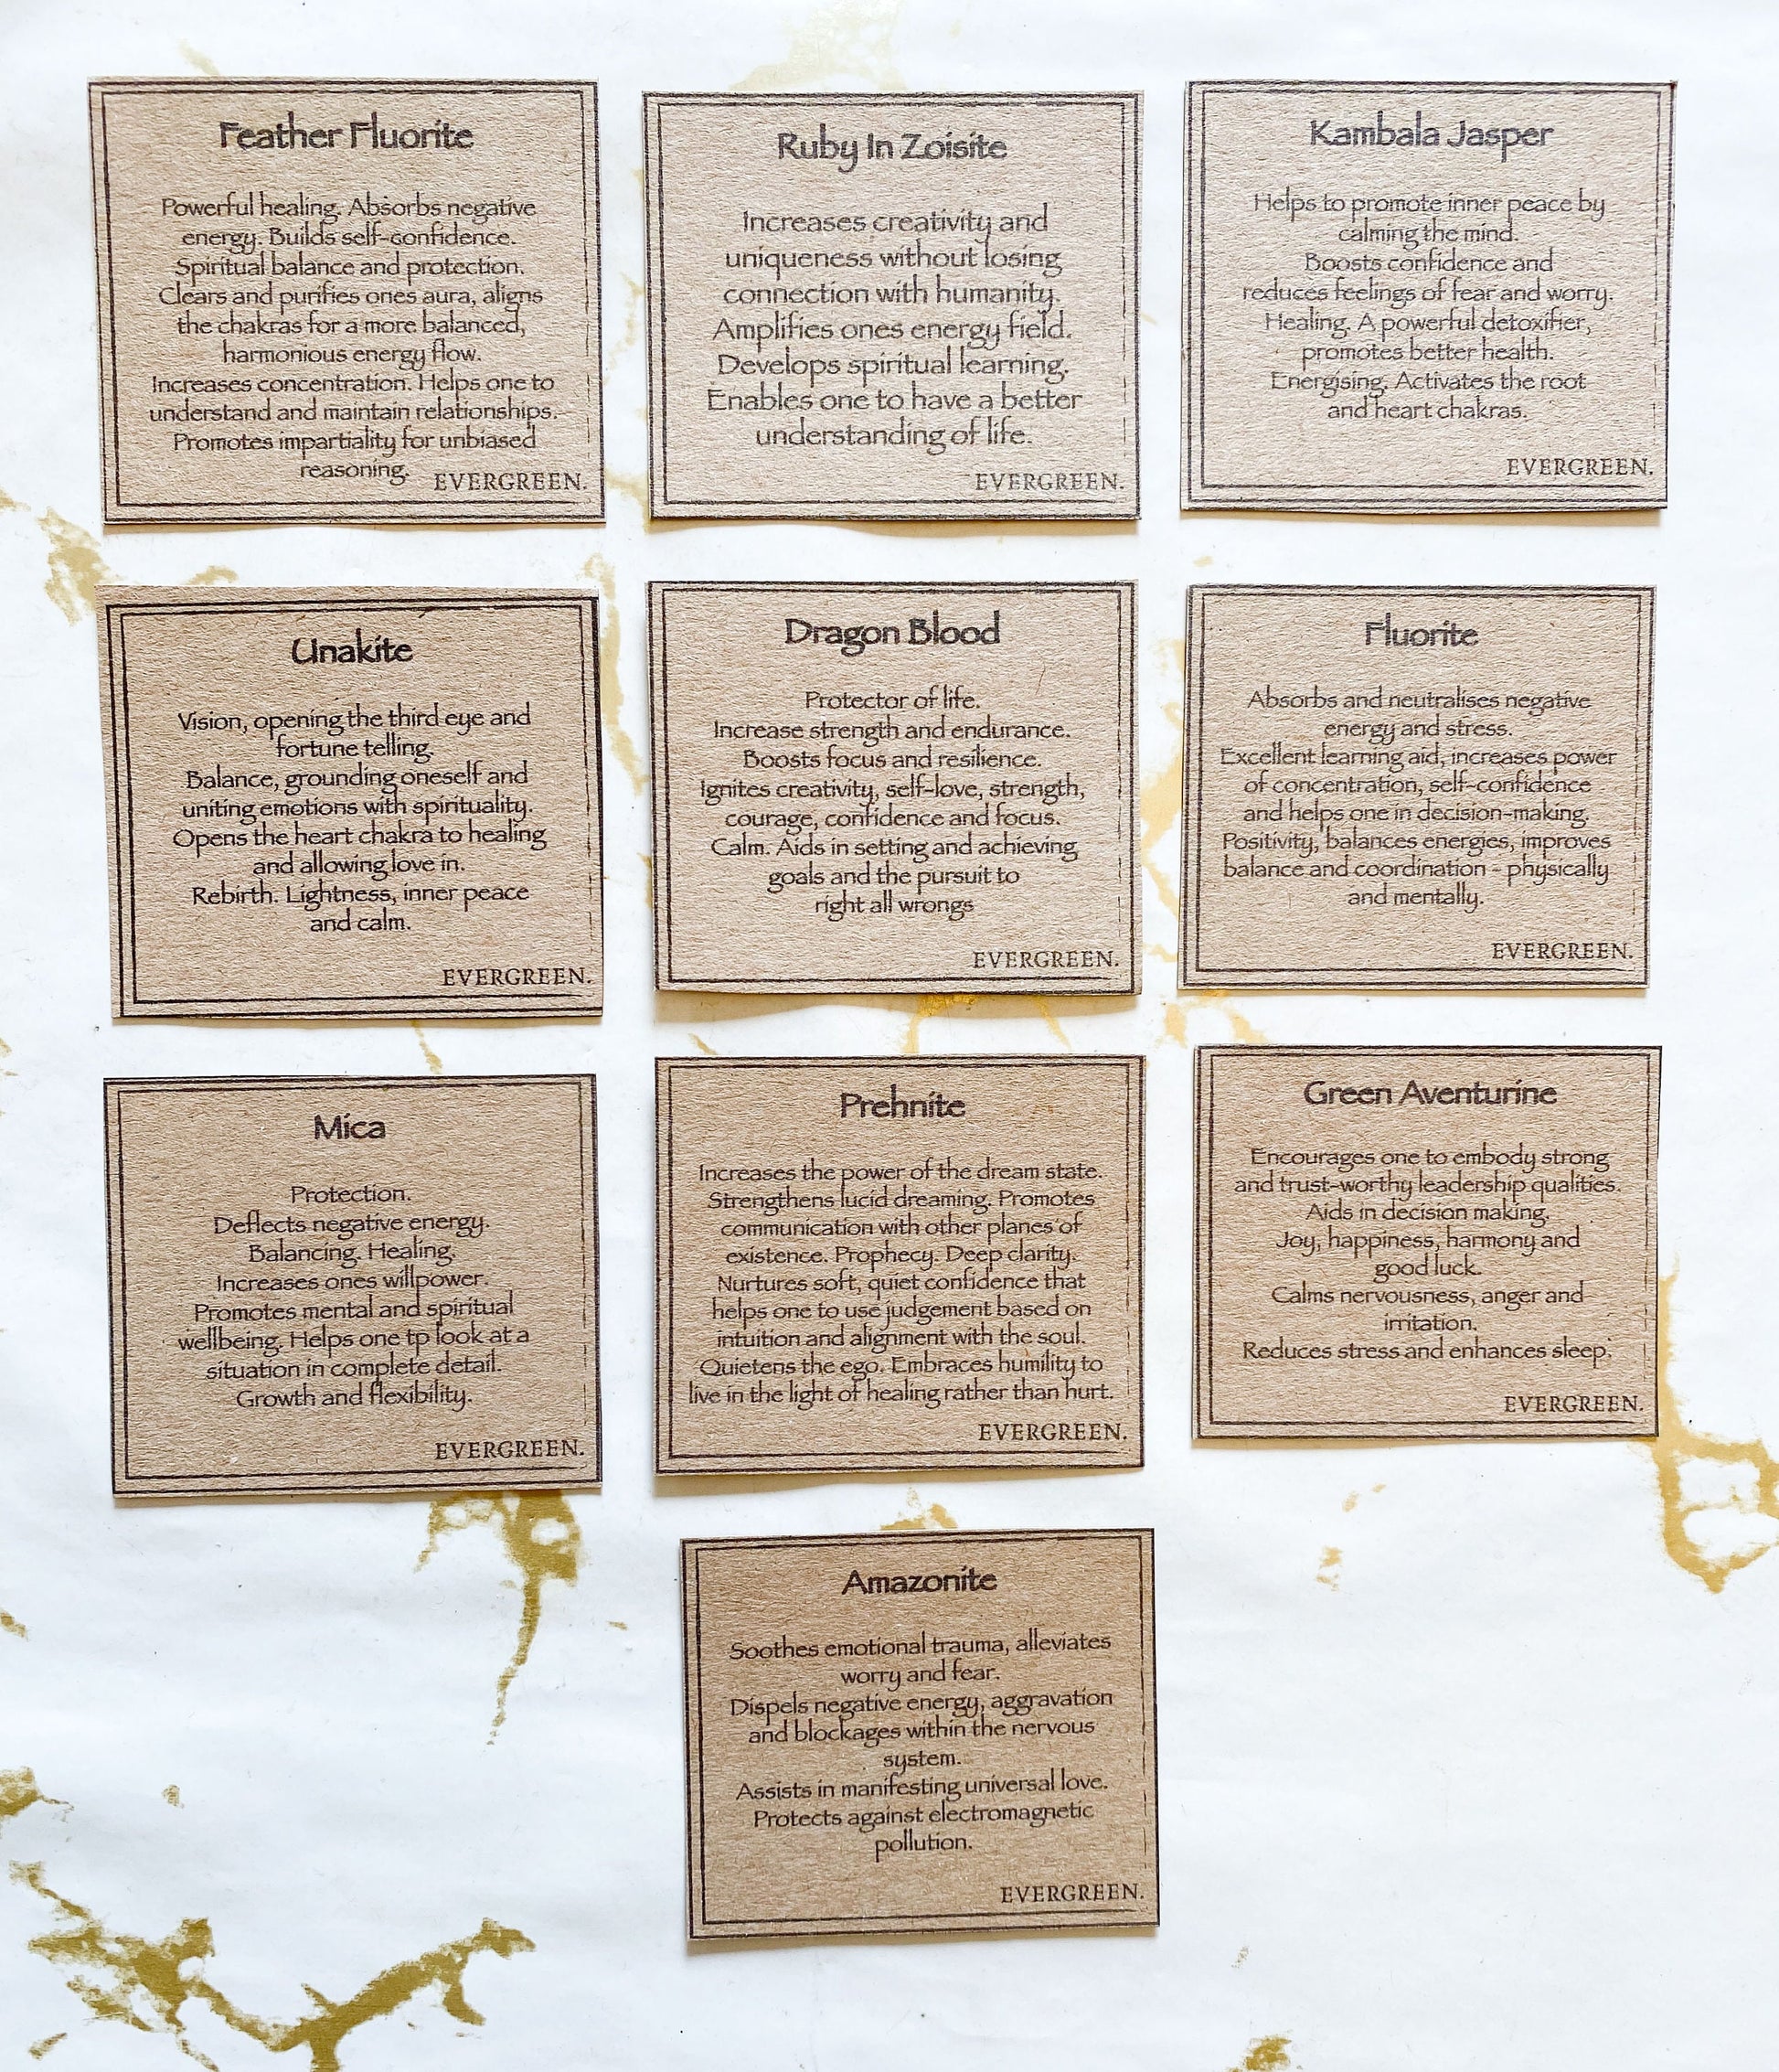 Feather Fluorite
Powerful healing. Absorbs negative
energy. Builds self-confidence.
Spiritual balance and protection.
Clears and purifies ones aura, aligns
the chakras for a more balanced,
harmonious energy flow.
Increases concentration. Helps one to
understand and maintain relationships.
Promotes impartiality for unbiased
reasoning.
EVERGREEN.
Ruby In Zoisite
Increases creativity and
uniqueness without losing
connection with humanity.
Amplifies ones energy field.
Develops spiritual learning.
Enables one to have a better
understanding of life.
EVERGREEN.
Kambala Jasper
Helps to promote inner peace by
calming the mind.
Boosts confidence and
reduces feelings of fear and worry.
Healing. A powerful detoxifier,
promotes better health.
Energising. Activates the root
and heart chakras.
EVERGREEN.
Unakite
Vision, opening the third eye and
fortune telling.
Balance, grounding oneself and
uniting emotions with spirituality.
Opens the heart chakra to healing
and allowing love in.
Rebirth. Lightness, inner peace
and calm.
EVERGREEN.
Dragon Blood
Protector of life.
Increase strength and endurance.
Boosts focus and resilience.
Ignites creativity, self-love, strength,
courage, confidence and focus.
Calm. Aids in setting and achieving
goals and the pursuit to
right all wrongs
EVERGREEN.
Fluorite
Absorbs and neutralises negative
energy and stress.
Excellent learning aid, increases power
of concentration, self-confidence
and helps one in decision-making.
Positivity, balances energies, improves
balance and coordination - physically
and mentally.
EVERGREEN.
Mica
Protection.
Deflects negative energy.
Balancing. Healing.
Increases ones willpower.
Promotes mental and spiritual
wellbeing. Helps one tp look at a
situation in complete detail.
Growth and flexibility.
EVERGREEN.
Prehnite
Increases the power of the dream state.
Strengthens lucid dreaming. Promotes
communication with other planes of
existence. Prophecy. Deep clarity.
Nurtures soft, quiet confidence that
helps one to use judgement based on
intuition and alignment with the soul.
Quietens the ego. Embraces humility to
live in the light of healing rather than hurt.
EVERGREEN.
Green Aventurine
Encourages one to embody strong
and trust-worthy leadership qualities.
Aids in decision making.
Joy, happiness, harmony and
good luck.
Calms nervousness, anger and
irritation.
Reduces stress and enhances sleep.
EVERGREEN.
Amazonite
Soothes emotional trauma, alleviates
worry and fear.
Dispels negative energy, aggravation
and blockages within the nervous
system.
Assists in manifesting universal love.
Protects against electromagnetic
pollution.
EVERGREEN.